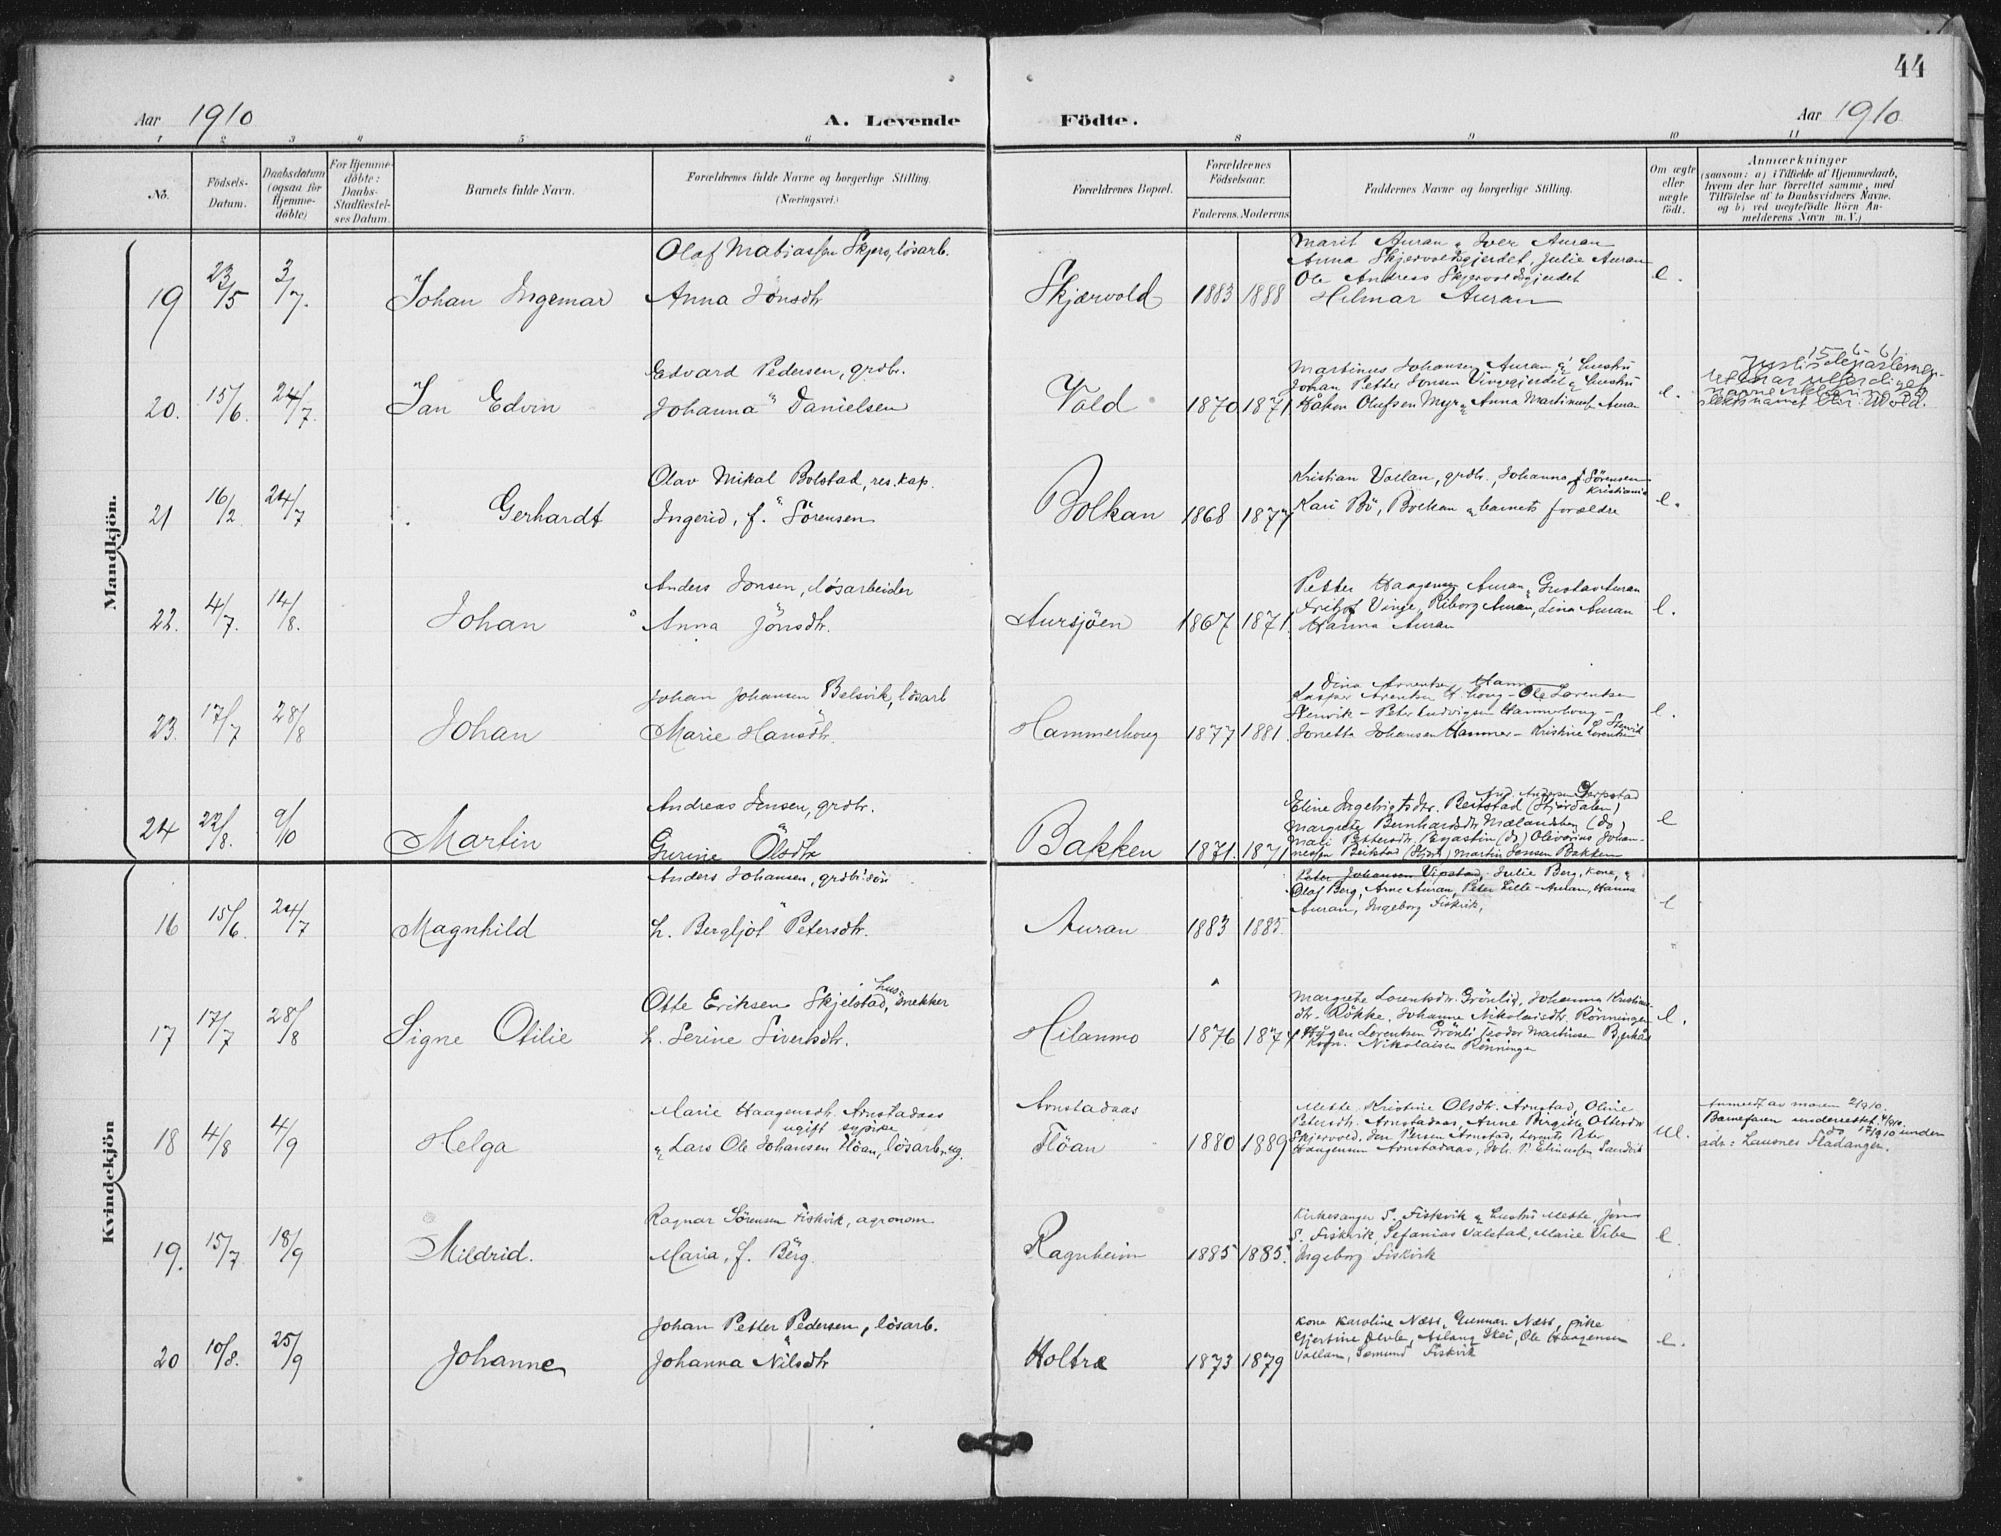 44
Aar 1910
A. Levende
Födte.
Aar 1910
1 2 3 4 5 6 8 9 10 11
No.
Födsels-
Datum.
Daabsdatum
(ogsaa for
Hjemme-
döbte)
For Hjemme-
döbte:
Daabs-
Stadfæstel-
ses Datum.
Barnets fulde Navn.
Forældrenes fulde Navne og borgerlige Stilling.
(Næringsvei.)
Forældrenes Bopæl.
Forældrenes
Födselsaar.
Faderens. Moderens.
Faddernes Navne og borgerlige Stilling.
Om ægte
eller
uægte
født.
Anmærkninger
(saasom: a) i Tilfælde af Hjemmedaab,
hvem der har forrettet samme, med
Tilföielse af to Daabsvidners Navne.
og b) ved uægtefödte Börn An-
melderens Navn m. V.)
Mandkjön.
19 23/5 3/7. Johan Ingemar
Olaf Matiassen Skjerv, lösarb.
Anna Jönsdtr
Skjærvold 1883 1888
Marit Auran " Iver Auran
Anna Skjervoldsgjerdet, Julie Auran
Ole Andreas Skjervoldsgjerdet
Hilmar Auran
e.
20. 15/6. 24/7. Jan Edvin
Edvard Pedersen, grdbr.
Johanna " Danielsen
Vold 1870 1871.
Martinus Johansen Auran " hustru
Johan Petter Jonsen Vingegjerdet " hustru
Håken Olufsen Myr " Anna Martinus. Auran
e.
15-6-61
Justisdepartemen-
tet har utferdiget
slektsnavnet Wold.
21 16/2. 24/7 Gerhardt
Olav Mikal Bolstad, res. kap.
Ingerid, f. Sörensen
Bolkan 1868 1877
Kristian Vollan, grdbr., Johanna f. Sörensen
Kristiania
Kari Bö, Bolkan " barnets forældre
e.
22. 4/7. 14/8. Johan
Anders Jonsen, lösarbeider
Anna Jönsdtr.
Aursjöen 1867 1871.
Petter Haagensen Auran, Gustav Auran
Fritjof Vinge, Riborg Auran, Lina Auran
Hanna Auran
e.
23. 17/7 28/8 Johan
Johan Johansen Balsvik, lösarb
Marie Hansdtr.
Hammerhoug 1877 1881.
Dina Arentsen
Kasper Arentsen H.houg - Ole Lorentsen
Stenvik - Peter Ludvigsen Hammerhoug -
Jonetta Johansen Hammer - Kristine Lorentsen Stenvik
e.
24 22/8. 9/10 Martin
Andreas Jensen, grdbr.
Gurine Olsdtr
Bakken 1871. 1871
Eline Ingebrigtsdtr. Beitstad (Stjördalen)
Margrete Bernhardsdtr Mælandsberg (do)
Mali Pettersdtr. (do) Oliverius Johan-
nessen Beitstad (Stjört) Martin Jonsen Bakken
e
Kvindekjön
16 15/6. 24/7 Magnhild
Anders Johansen, grdbr.sön
h. Bergljot Petersdtr.
Auran 1883 1885.
Peter Johansen Vipstad, Julie Berg, kone, "
Olaf Berg, Arne Auran, Peter Lille-Auran, Hanna
Auran, Ingeborg Fiskvik,
e
17 17/7 28/8 Signe Otilie
Otte Eriksen Skjelstad, hus-snekker
h. Serine Sivertsdtr.
Hilanmo 1876 1874
Margrete Lorentsdtr. Grönlid, Johanna Kristians-
dtr. Rökke, Johanne Nikolaisdtr. Rönningen
Hågen Lorentsen Grönli, Teodor Martinsen Bjerkås
Nikolaisen Rönningen
e.
18 4/8 4/9 Helga
Marie Haagensdtr. Arnstadaas
ugift sypike
" Lars Ole Johansen Flöan, lösarb. ug.
Arnstadaas
Flöan 1880 1889
Mette Kristine Olsdtr. Arnstad, Oline
Petersdtr. Arnstadaas, Anne Birgitte Ottersdtr
Skjervold, Jon Persen Arnstad, Lorents Peter
Haagensen Arnstadaas, Joh. P. Elinussen Sandvik
ul.
Anmeldt av moren 2/9 10.
Barnefaren underrettet 4/9 10.
do 17/9 10 under
adr: Lausnes Fladanger.
19. 15/7 18/9 Mildrid.
Ragnar Sörensen Fiskvik, agronom
Maria, f. Berg.
Ragnheim 1885 1885.
Kirkesanger S. Fiskvik " hustru Mette, Jörn
S. Fiskvik, Sefanias Valstad, Marie Vibe
Ingeborg Fiskvik
e.
20 10/8. 25/9 Johanne
Johan Petter Pedersen, lösarb.
Johanna Nilsdtr
Holtræ 1873 1879
Kone Karoline Næss, Gunnar Næss, pike
Gjertine Devle, Aslaug Skei, Ole Haagensen
Vollan, Sæmund Fiskvik
e.